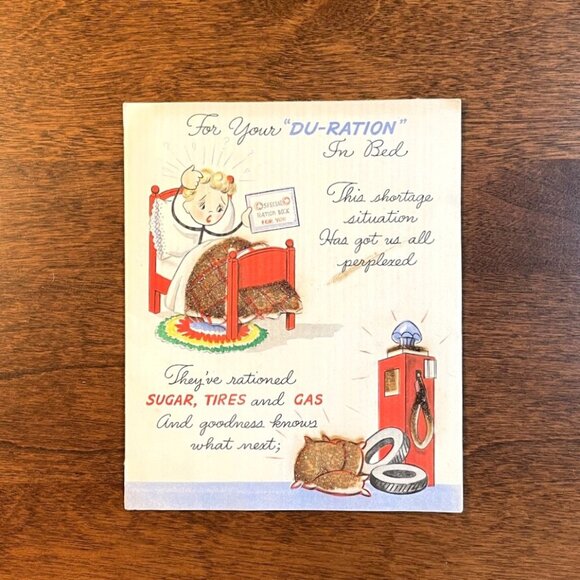 For Your "DU-RATION"
In Bed
SPECIAL
RATION BOOK
FOR YOU
This shortage
situation
Has got us all
perplexed
They've rationed
SUGAR, TIRES and GAS
And goodness knows
what next;